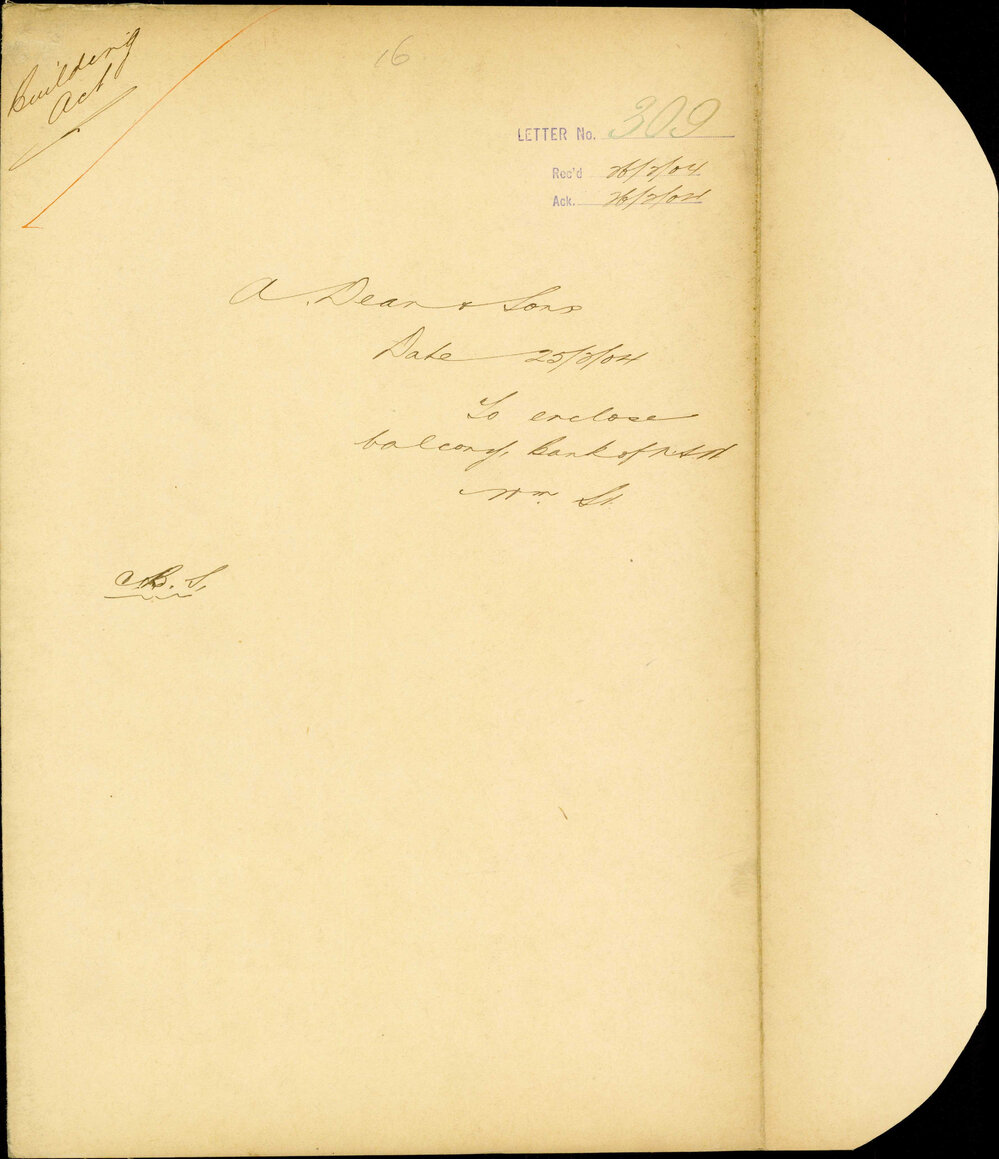 Building
Act
16
LETTER No. 309
Rec'd 26/2/04
Ack. 26/2/04
A. Dean & Sons
Date 25/2/04
To enclose
balcony, Bank of N.S.W
Wm. St.
C.B.S.